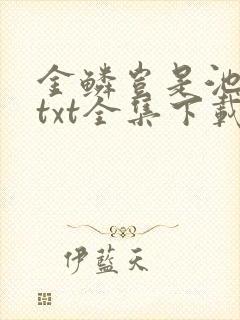 金鳞岂是池
txt全集下載
伊藍天